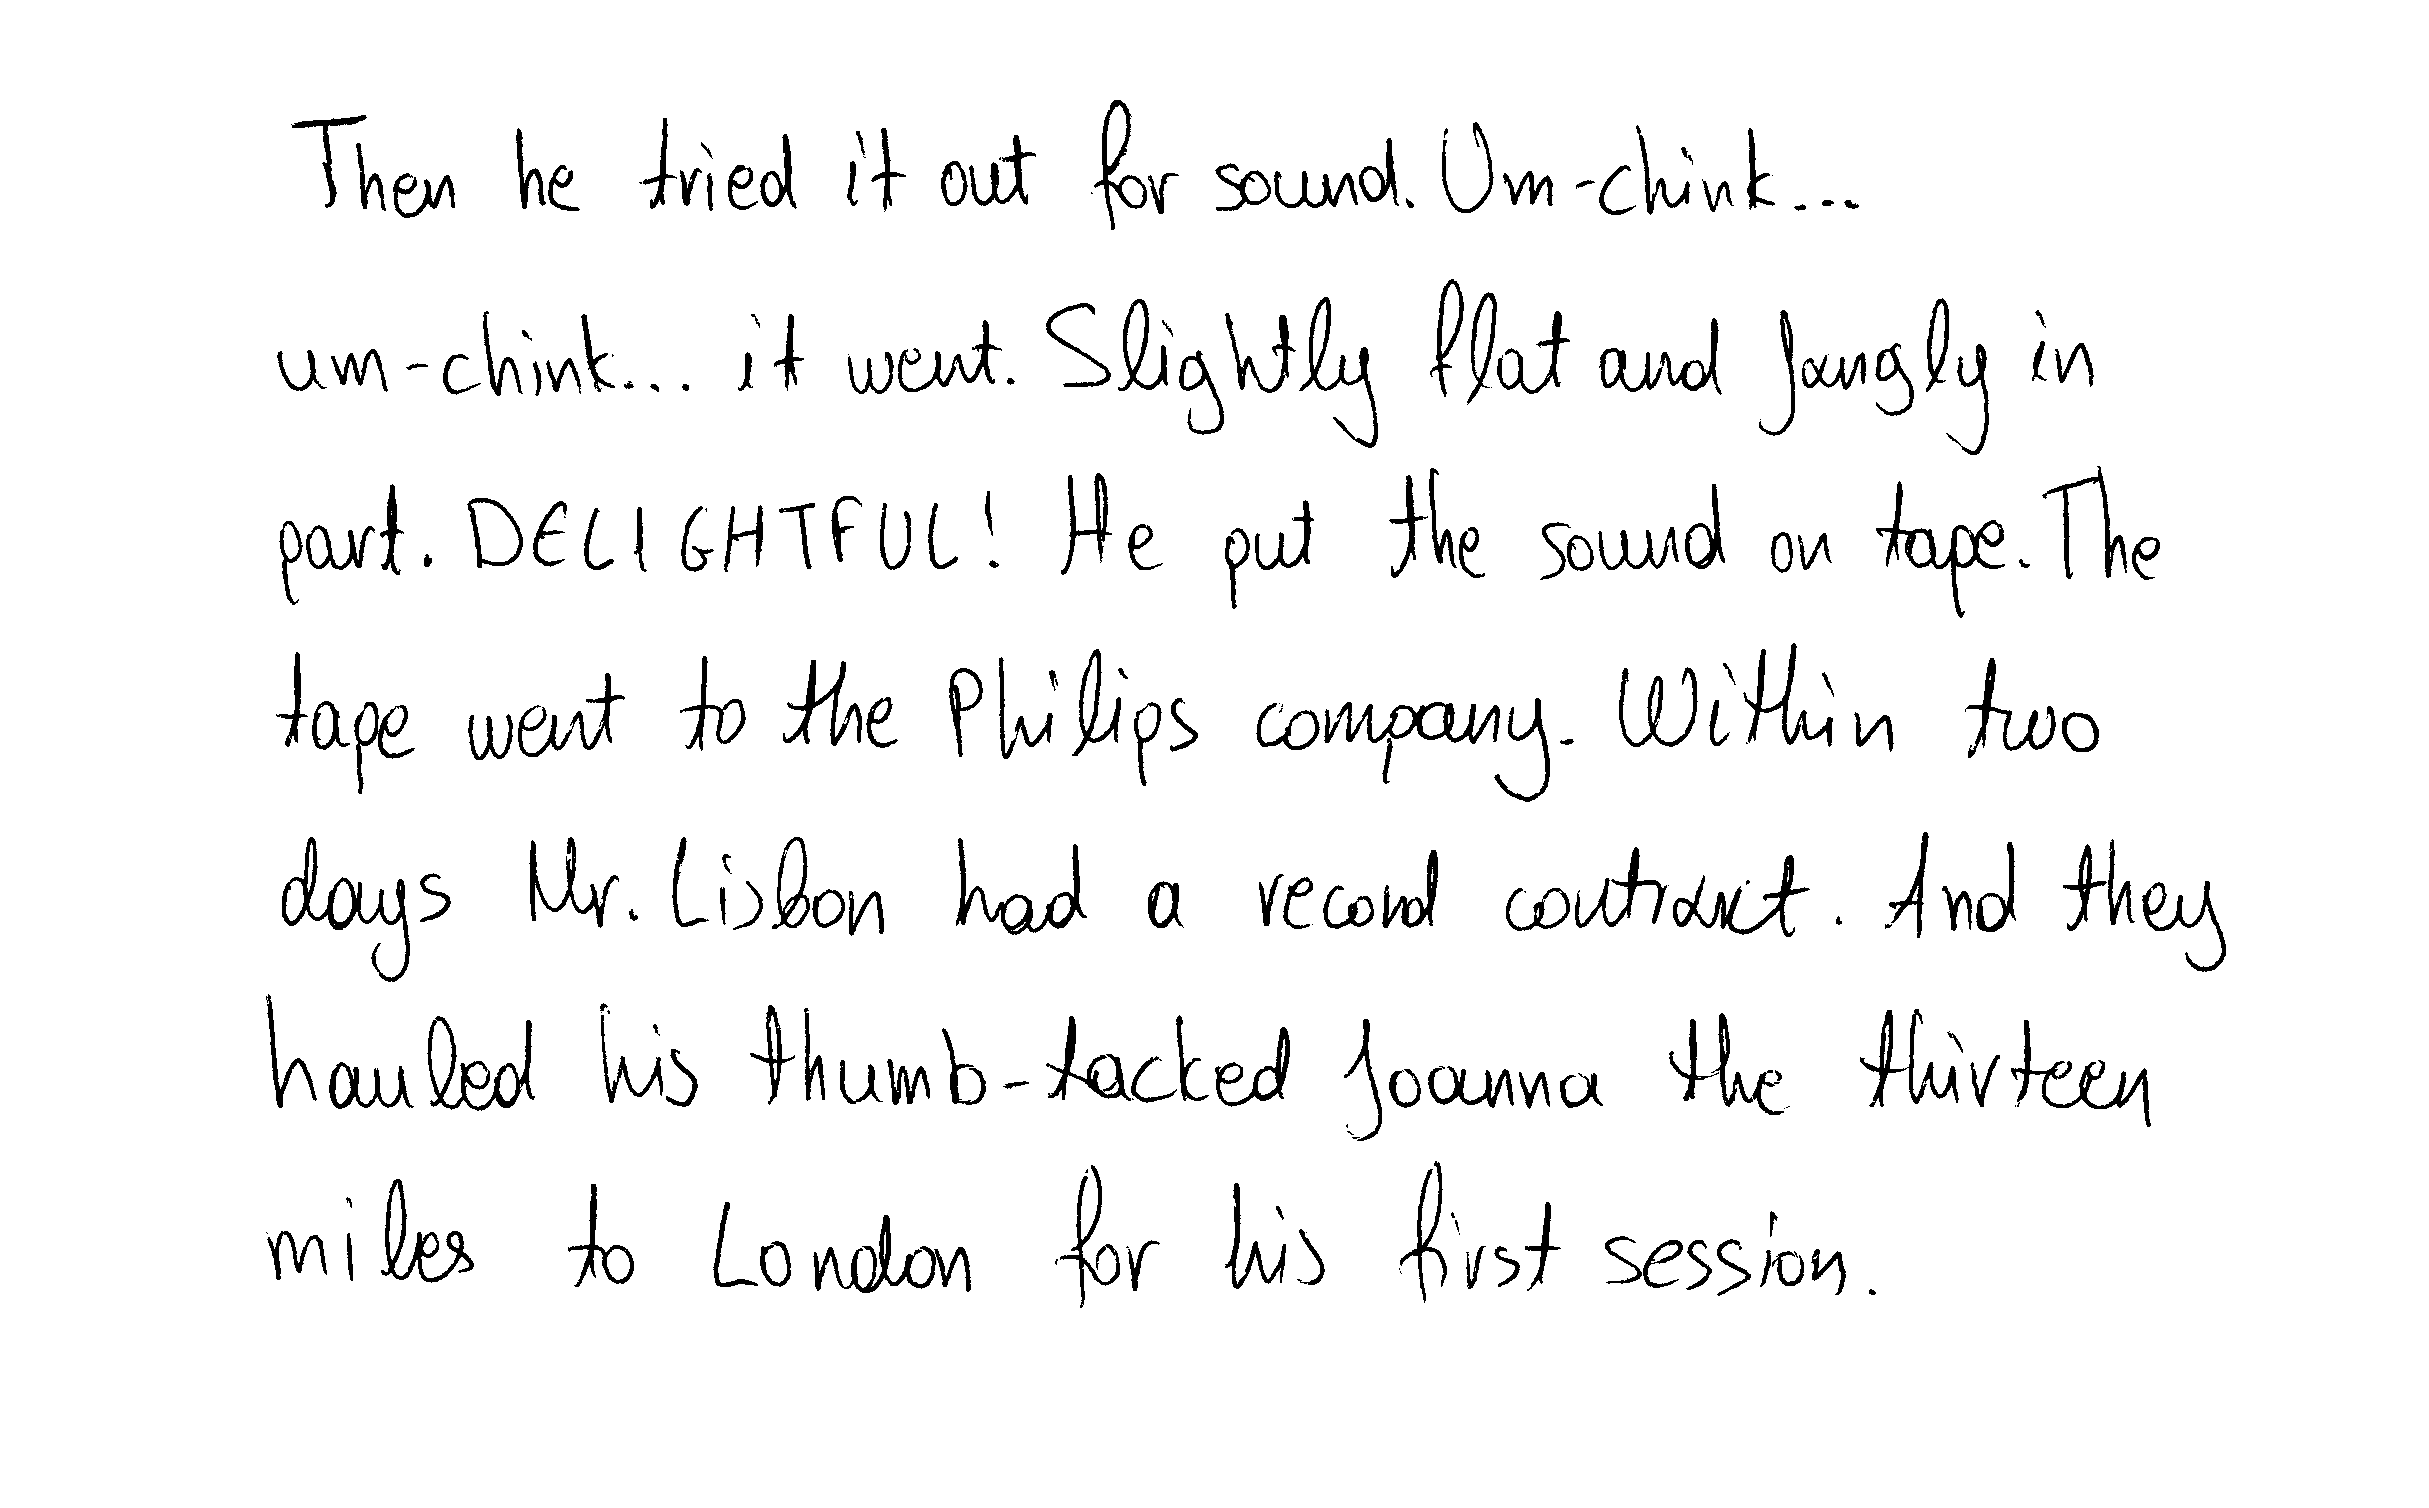 Then he tried it out for sound. Um-chink...
um-chink... it went. Slightly flat and jangly in
part. DELIGHTFUL! He put the sound on tape. The
tape went to the Philips company. Within two
days Mr. Lisbon had a record contract. And they
hauled his thumb-tacked Joanna the thirteen
miles to London for his first session.